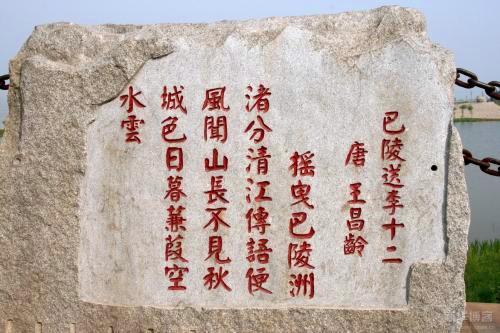 巴陵送李十二
唐 王昌齡
摇曳巴陵洲
渚分清江傳語便
風聞山長不見秋
城色日暮蒹葭空
水雲